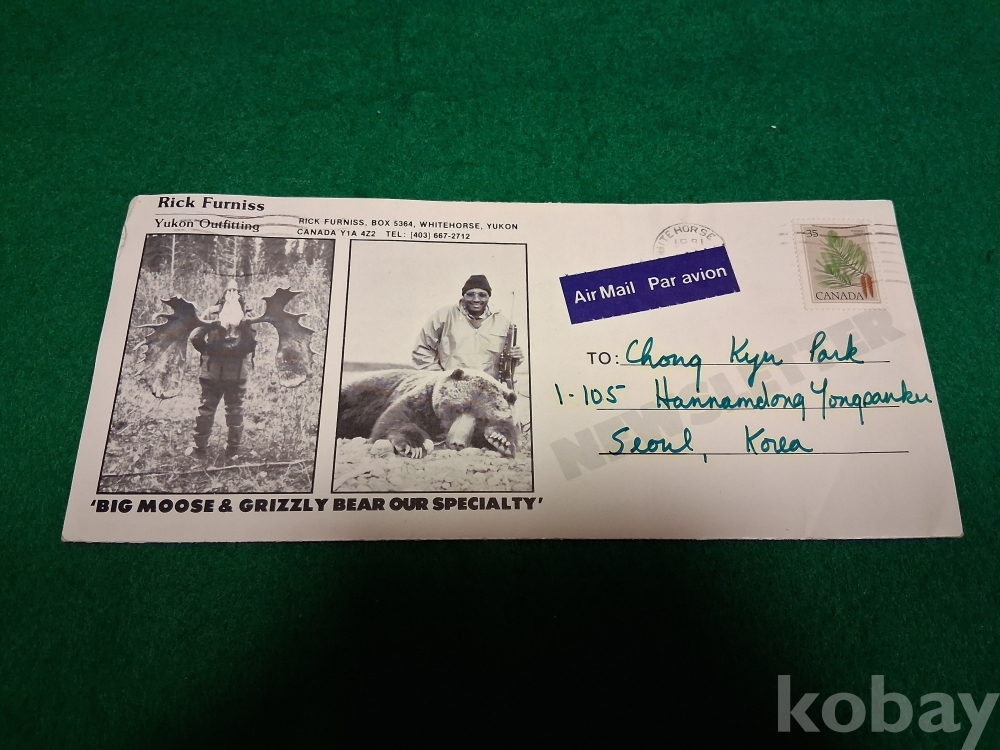 Rick Furniss
Yukon Outfitting
RICK FURNISS, BOX 5364, WHITEHORSE, YUKON
CANADA Y1A 4Z2 TEL: (403) 667-2712
'BIG MOOSE & GRIZZLY BEAR OUR SPECIALTY'
Air Mail Par avion
35
CANADA
TO: Chong Kyu Park
1-105 Hannamdong Yongsanku
Seoul, Korea
NEWSLETTER
kobay